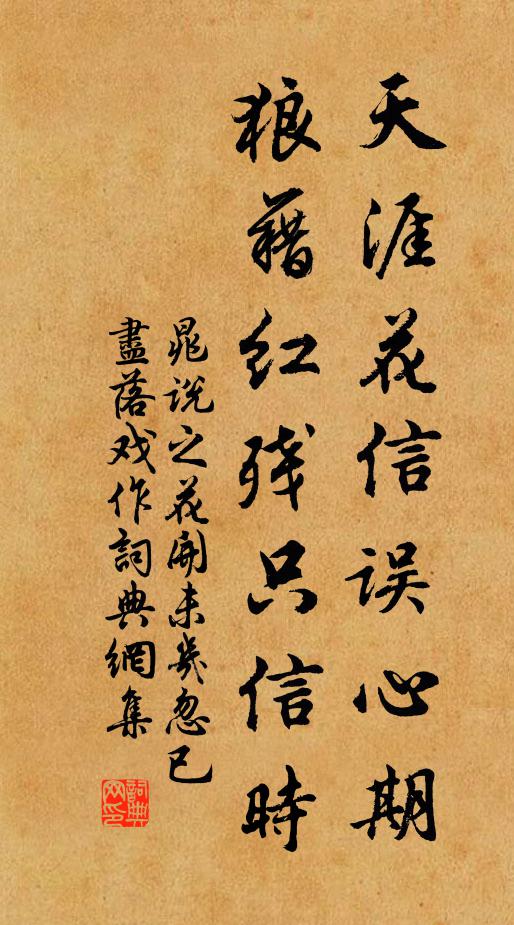 天涯花信误心期
狼藉红残只信時
晁说之花開未幾忽已
盡落戏作詞典網集
詞典
网印